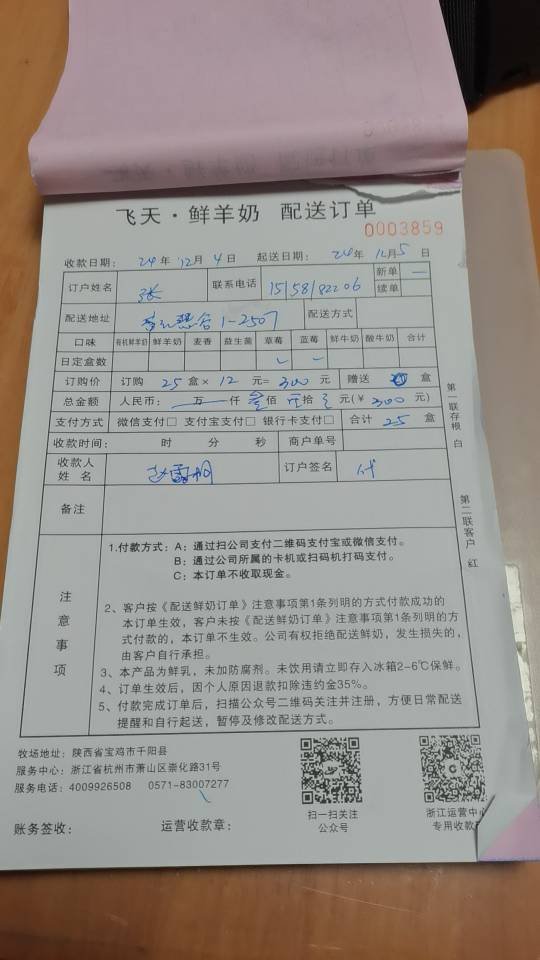 飞天·鲜羊奶 配送订单
0003859
收款日期： 24 年 12 月 4 日 起送日期： 24 年 12 月 5 日
订户姓名 张 联系电话 15158182206 新单 一
续单
配送地址 1-2507 配送方式
口味 有机鲜羊奶 鲜羊奶 麦香 益生菌 草莓 蓝莓 鲜牛奶 酸牛奶 合计
日定盒数 一 一
订购价 订购 25 盒 × 12 元= 300 元 赠送 盒
总金额 人民币： 万 仟 叁 佰 零 拾 元(￥ 300 元)
支付方式 微信支付□ 支付宝支付□ 银行卡支付□ 合计 25 盒
收款时间： 时 分 秒 商户单号
收款人姓名 订户签名 代
备注
注意事项
1.付款方式：A：通过扫公司支付二维码支付宝或微信支付。
B：通过公司所属的卡机或扫码机打码支付。
C：本订单不收取现金。
2、客户按《配送鲜奶订单》注意事项第1条列明的方式付款成功的
本订单生效，客户未按《配送鲜奶订单》注意事项第1条列明的方
式付款的，本订单不生效。公司有权拒绝配送鲜奶，发生损失的，
由客户自行承担。
3、本产品为鲜乳，未加防腐剂。未饮用请立即存入冰箱2-6℃保鲜。
4、订单生效后，因个人原因退款扣除违约金35%。
5、付款完成订单后，扫描公众号二维码关注并注册，方便日常配送
提醒和自行起送，暂停及修改配送方式。
第一联存根 白
第二联客户 红
牧场地址：陕西省宝鸡市千阳县
服务中心：浙江省杭州市萧山区崇化路31号
服务电话：4009926508 0571-83007277
账务签收： 运营收款章：
扫一扫关注
公众号
浙江运营中心
专用收款